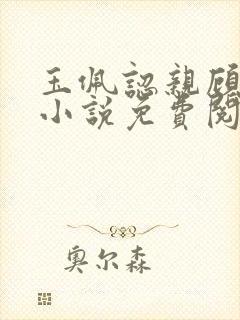 玉佩認親顾
小說免費閱
奥尔森